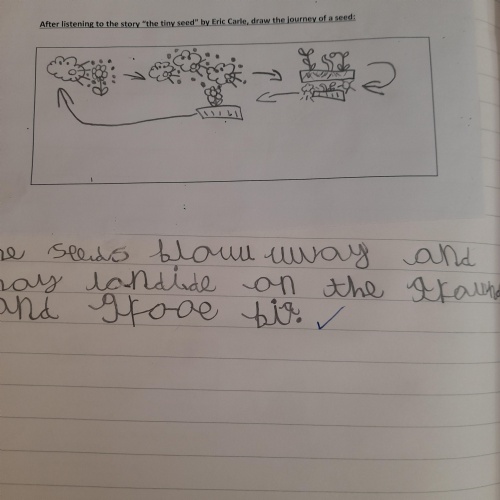 After listening to the story "the tiny seed" by Eric Carle, draw the journey of a seed:
he seeds blow uway and
hay landide on the graund
and grooe big.